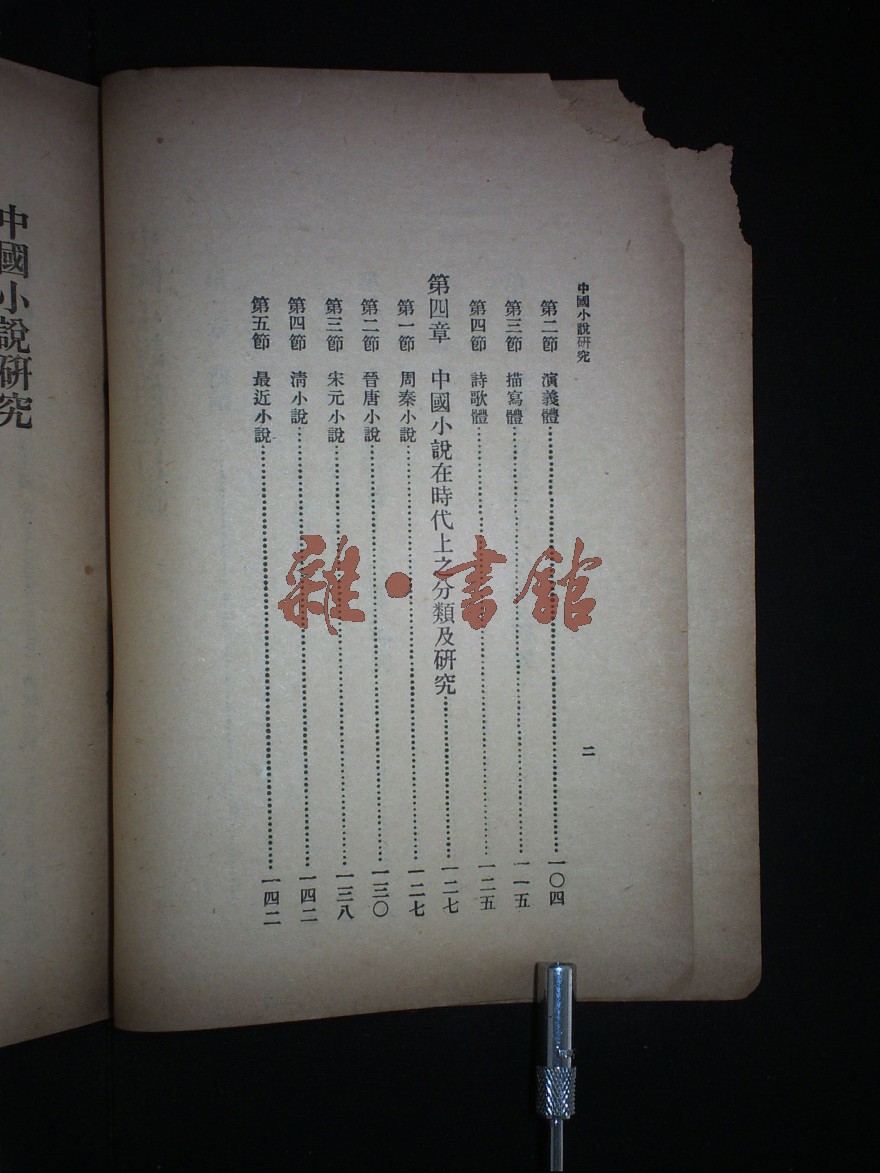 中國小說研究
二
第二節 演義體……一〇四
第三節 描寫體……一一五
第四節 詩歌體……一二五
第四章 中國小說在時代上之分類及研究……一二七
第一節 周秦小說……一二七
第二節 晉唐小說……一三〇
第三節 宋元小說……一三八
第四節 清小說……一四二
第五節 最近小說……一四二
中國小說研究
雜·書館